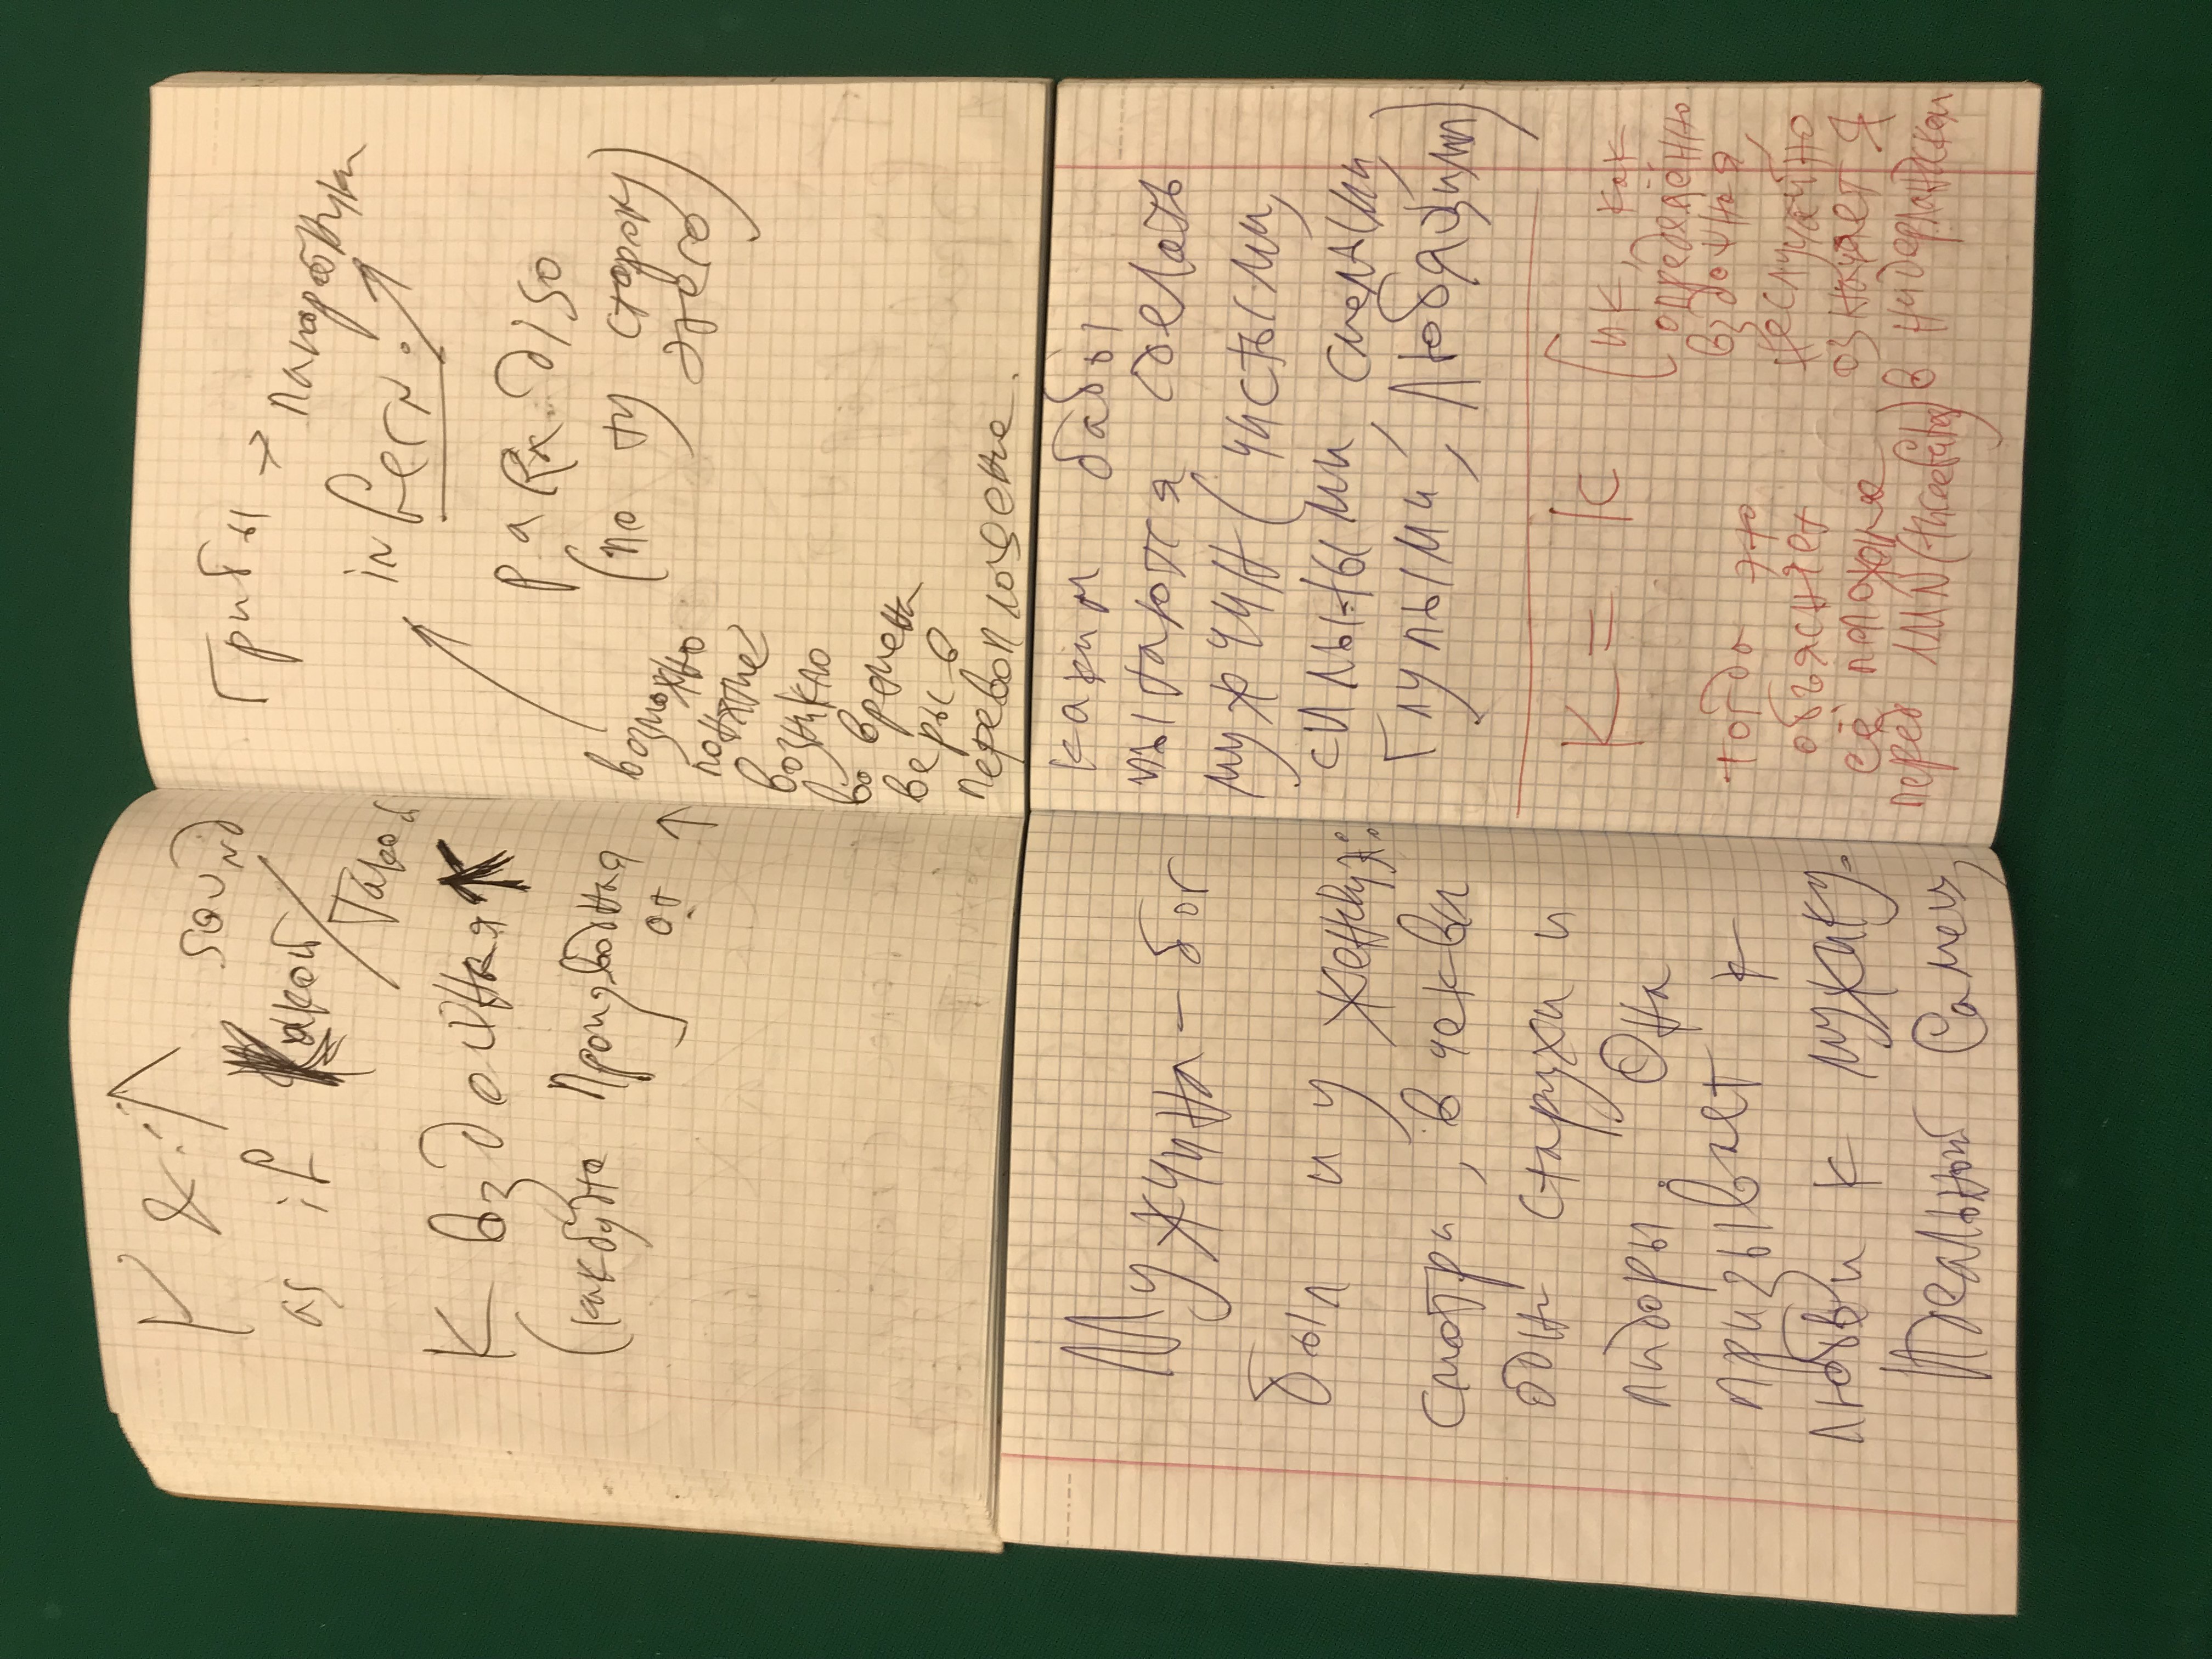 sound
as if какой/
такой
К вздошная
(как будто производная
от ↑
Грибы →
папоротники
in fern.
paRx.diso
(по ту сторону
этого)
возможно
понятие
возникло
во времена
веры в
перевоплощение.
Мужчина – бог
был и у женщин:
смотри, в церкви
одни старухи и
пидоры. Она
призывает к
любви к мужику.
Идеальный самец,
каким бабы
пытаются сделать
мужчин (чистыми,
сильными, смелыми,
глупыми, любящими)
K = К
(ик, как
определённо
вздошная,
неслучайно
означает Я
в нидерландском
тогда это
объясняет
её положение
перед LMN (three fates)